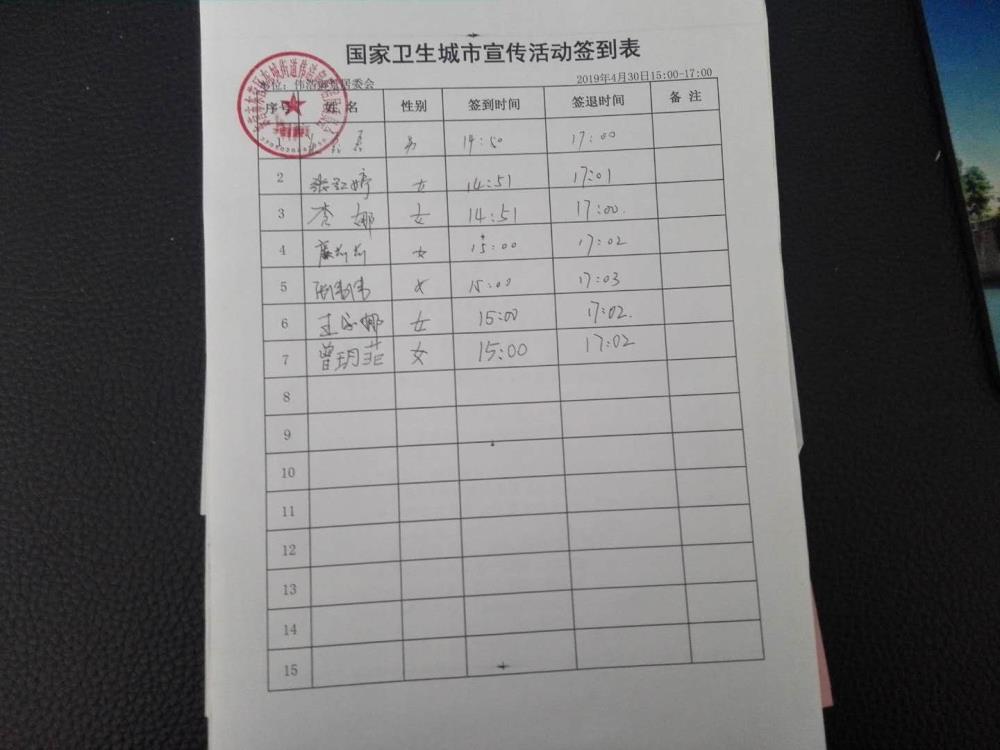 国家卫生城市宣传活动签到表
2019年4月30日15:00-17:00
序号 姓 名 性别 签到时间 签退时间 备 注
男 14:50 17:00
2 女 14:51 17:01
3 李 娜 女 14:51 17:00.
4 女 15:00 17:02
5 15:00 17:03
6 女 15:00 17:02.
7 曾玥菲 女 15:00 17:02
8
9
10
11
12
13
14
15